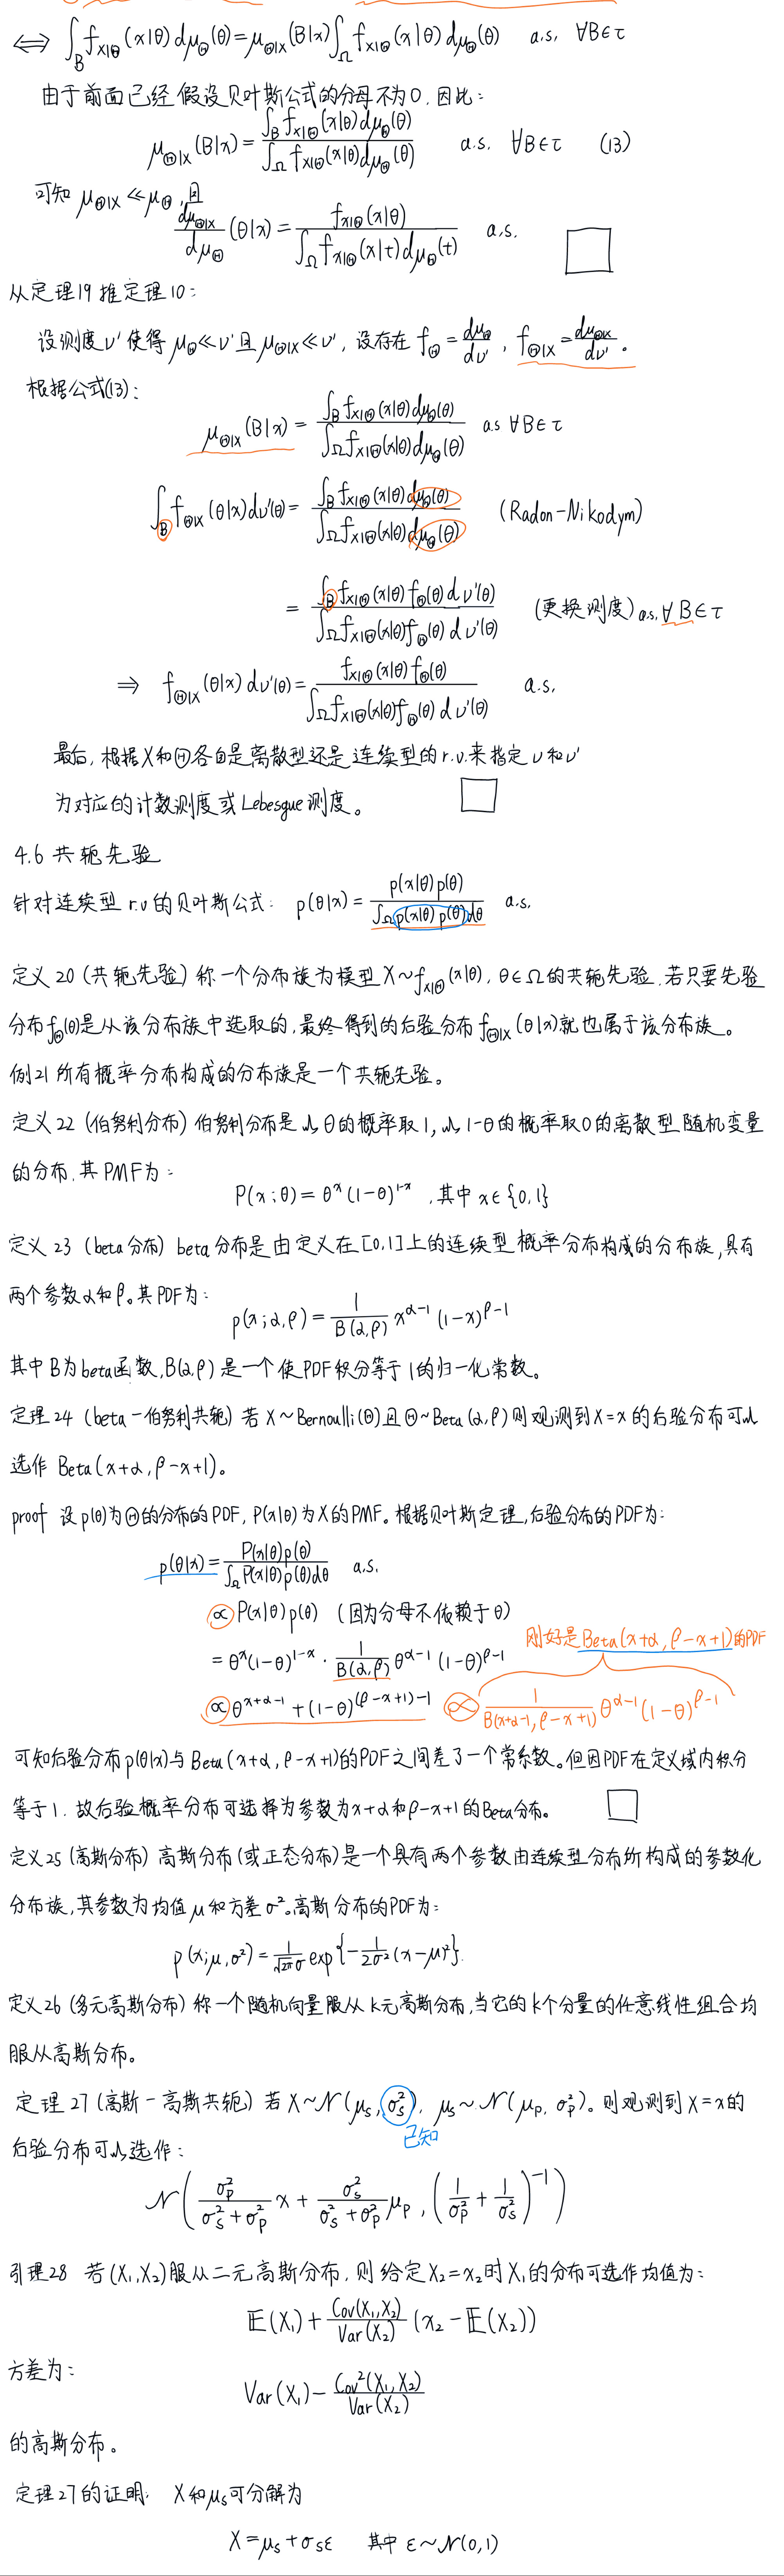 ⟺ ∫_B f_{X|Θ}(x|θ) dμ_Θ(θ) = μ_{Θ|X}(B|x) ∫_Ω f_{X|Θ}(x|θ) dμ_Θ(θ) a.s. ∀B∈τ
由于前面已经假设贝叶斯公式的分母不为0,因此:
μ_{Θ|X}(B|x) = ∫_B f_{X|Θ}(x|θ) dμ_Θ(θ) / ∫_Ω f_{X|Θ}(x|θ) dμ_Θ(θ) a.s. ∀B∈τ (13)
可知 μ_{Θ|X} ≪ μ_Θ,且
dμ_{Θ|X}/dμ_Θ (θ|x) = f_{X|Θ}(x|θ) / ∫_Ω f_{X|Θ}(x|t) dμ_Θ(t) a.s. □
从定理19推定理10:
设测度ν'使得 μ_Θ≪ν' 且 μ_{Θ|X}≪ν',设存在 f_Θ = dμ_Θ/dν', f_{Θ|X} = dμ_{Θ|X}/dν'。
根据公式(13):
μ_{Θ|X}(B|x) = ∫_B f_{X|Θ}(x|θ) dμ_Θ(θ) / ∫_Ω f_{X|Θ}(x|θ) dμ_Θ(θ) a.s ∀B∈τ
∫_B f_{Θ|X}(θ|x) dν'(θ) = ∫_B f_{X|Θ}(x|θ) dμ_Θ(θ) / ∫_Ω f_{X|Θ}(x|θ) dμ_Θ(θ) (Radon-Nikodym)
= ∫_B f_{X|Θ}(x|θ) f_Θ(θ) dν'(θ) / ∫_Ω f_{X|Θ}(x|θ) f_Θ(θ) dν'(θ) (更换测度) a.s. ∀B∈τ
⇒ f_{Θ|X}(θ|x) dν'(θ) = f_{X|Θ}(x|θ) f_Θ(θ) / ∫_Ω f_{X|Θ}(x|θ) f_Θ(θ) dν'(θ) a.s.
最后,根据X和Θ各自是离散型还是连续型的r.v.来指定ν和ν'
为对应的计数测度或Lebesgue测度。 □
4.6 共轭先验
针对连续型r.v的贝叶斯公式: p(θ|x) = p(x|θ)p(θ) / ∫_Ω p(x|θ)p(θ)dθ a.s.
定义20(共轭先验)称一个分布族为模型X~f_{X|Θ}(x|θ),θ∈Ω的共轭先验,若只要先验
分布f_Θ(θ)是从该分布族中选取的,最终得到的后验分布f_{Θ|X}(θ|x)就也属于该分布族。
例21 所有概率分布构成的分布族是一个共轭先验。
定义22(伯努利分布)伯努利分布是以θ的概率取1,以1-θ的概率取0的离散型随机变量
的分布,其PMF为:
P(x;θ) = θ^x (1-θ)^{1-x} ,其中 x∈{0,1}
定义23(beta分布)beta分布是由定义在[0,1]上的连续型概率分布构成的分布族,具有
两个参数α和β。其PDF为:
p(x;α,β) = 1/B(α,β) x^{α-1} (1-x)^{β-1}
其中B为beta函数,B(α,β)是一个使PDF积分等于1的归一化常数。
定理24(beta-伯努利共轭)若X~Bernoulli(Θ)且Θ~Beta(α,β)则观测到X=x的后验分布可以
选作 Beta(x+α, β-x+1)。
proof 设p(θ)为Θ的分布的PDF,P(x|θ)为X的PMF。根据贝叶斯定理,后验分布的PDF为:
p(θ|x) = P(x|θ)p(θ) / ∫_Ω P(x|θ)p(θ)dθ a.s.
∝ P(x|θ)p(θ) (因为分母不依赖于θ)
刚好是Beta(x+α, β-x+1)的PDF
= θ^x (1-θ)^{1-x} · 1/B(α,β) θ^{α-1} (1-θ)^{β-1}
∝ θ^{x+α-1} + (1-θ)^{(β-x+1)-1} ∝ 1/B(x+α-1, β-x+1) θ^{α-1} (1-θ)^{β-1}
可知后验分布p(θ|x)与Beta(x+α, β-x+1)的PDF之间差了一个常系数。但因PDF在定义域内积分
等于1.故后验概率分布可选择为参数为x+α和β-x+1的Beta分布。 □
定义25(高斯分布)高斯分布(或正态分布)是一个具有两个参数由连续型分布所构成的参数化
分布族,其参数为均值μ和方差σ²。高斯分布的PDF为:
p(x;μ,σ²) = 1/(√(2π)σ) exp{-1/(2σ²) (x-μ)²}.
定义26(多元高斯分布)称一个随机向量服从k元高斯分布,当它的k个分量的任意线性组合均
服从高斯分布。
定理27(高斯-高斯共轭)若X~N(μ_s, σ_s²),μ_s~N(μ_p, σ_p²)。则观测到X=x的
已知
后验分布可以选作:
N( σ_p²/(σ_s²+σ_p²) x + σ_s²/(σ_s²+σ_p²) μ_p , (1/σ_p² + 1/σ_s²)^{-1} )
引理28 若(X₁,X₂)服从二元高斯分布,则给定X₂=x₂时X₁的分布可选作均值为:
E(X₁) + Cov(X₁,X₂)/Var(X₂) (x₂ - E(X₂))
方差为:
Var(X₁) - Cov²(X₁,X₂)/Var(X₂)
的高斯分布。
定理27的证明: X和μ_s可分解为
X = μ_s + σ_s ε 其中 ε~N(0,1)